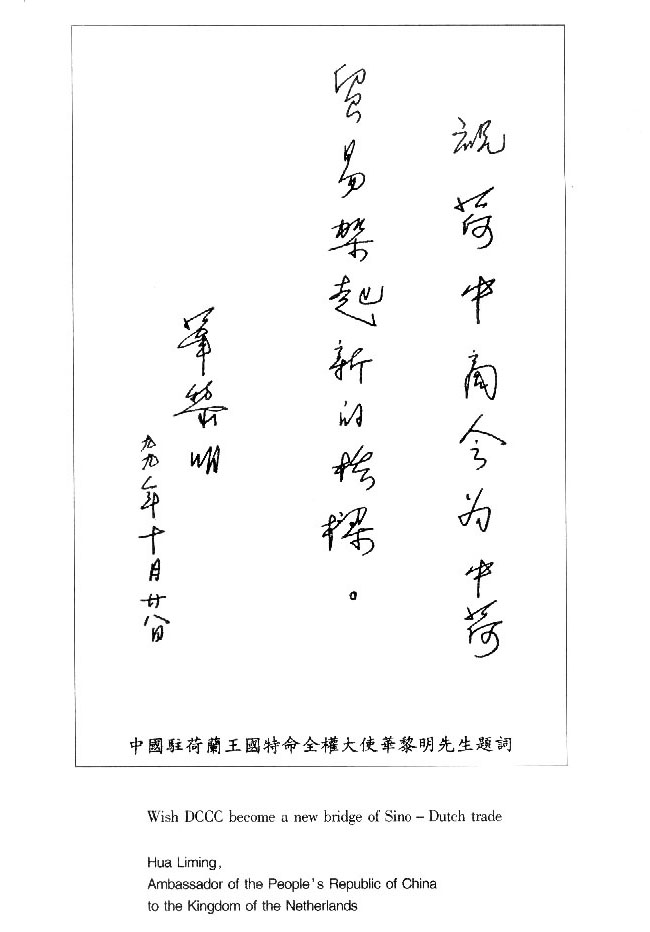 祝荷中商会为中荷
贸易架起新的桥樑。
華黎明
九九八年十月廿八日
中國駐荷蘭王國特命全權大使華黎明先生題詞
Wish DCCC become a new bridge of Sino – Dutch trade
Hua Liming,
Ambassador of the People's Republic of China
to the Kingdom of the Netherlands